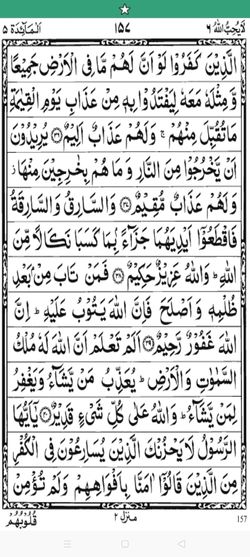 لَا يُحِبُّ اللّٰهُ ٦ ١٥٧ اَلْمَآئِدَة ٥
الَّذِيْنَ كَفَرُوْا لَوْ اَنَّ لَهُمْ مَّا فِى الْاَرْضِ جَمِيْعًا
وَّ مِثْلَهٗ مَعَهٗ لِيَفْتَدُوْا بِهٖ مِنْ عَذَابِ يَوْمِ الْقِيٰمَةِ
مَا تُقُبِّلَ مِنْهُمْ ۚ وَلَهُمْ عَذَابٌ اَلِيْمٌ ﴿٣٦﴾ يُرِيْدُوْنَ
اَنْ يَّخْرُجُوْا مِنَ النَّارِ وَ مَا هُمْ بِخٰرِجِيْنَ مِنْهَا ۫
وَلَهُمْ عَذَابٌ مُّقِيْمٌ ﴿٣٧﴾ وَالسَّارِقُ وَالسَّارِقَةُ
فَاقْطَعُوْۤا اَيْدِيَهُمَا جَزَآءًۢ بِمَا كَسَبَا نَكَالًا مِّنَ
اللّٰهِ ؕ وَاللّٰهُ عَزِيْزٌ حَكِيْمٌ ﴿٣٨﴾ فَمَنْ تَابَ مِنْۢ بَعْدِ
ظُلْمِهٖ وَ اَصْلَحَ فَاِنَّ اللّٰهَ يَتُوْبُ عَلَيْهِ ؕ اِنَّ
اللّٰهَ غَفُوْرٌ رَّحِيْمٌ ﴿٣٩﴾ اَلَمْ تَعْلَمْ اَنَّ اللّٰهَ لَهٗ مُلْكُ
السَّمٰوٰتِ وَالْاَرْضِ ؕ يُعَذِّبُ مَنْ يَّشَآءُ وَيَغْفِرُ
لِمَنْ يَّشَآءُ ؕ وَاللّٰهُ عَلٰى كُلِّ شَىْءٍ قَدِيْرٌ ﴿٤٠﴾ يٰۤاَيُّهَا
الرَّسُوْلُ لَا يَحْزُنْكَ الَّذِيْنَ يُسَارِعُوْنَ فِى الْكُفْرِ
مِنَ الَّذِيْنَ قَالُوْۤا اٰمَنَّا بِاَفْوَاهِهِمْ وَلَمْ تُؤْمِنْ
قُلُوْبُهُمْ منزل ٢ 157